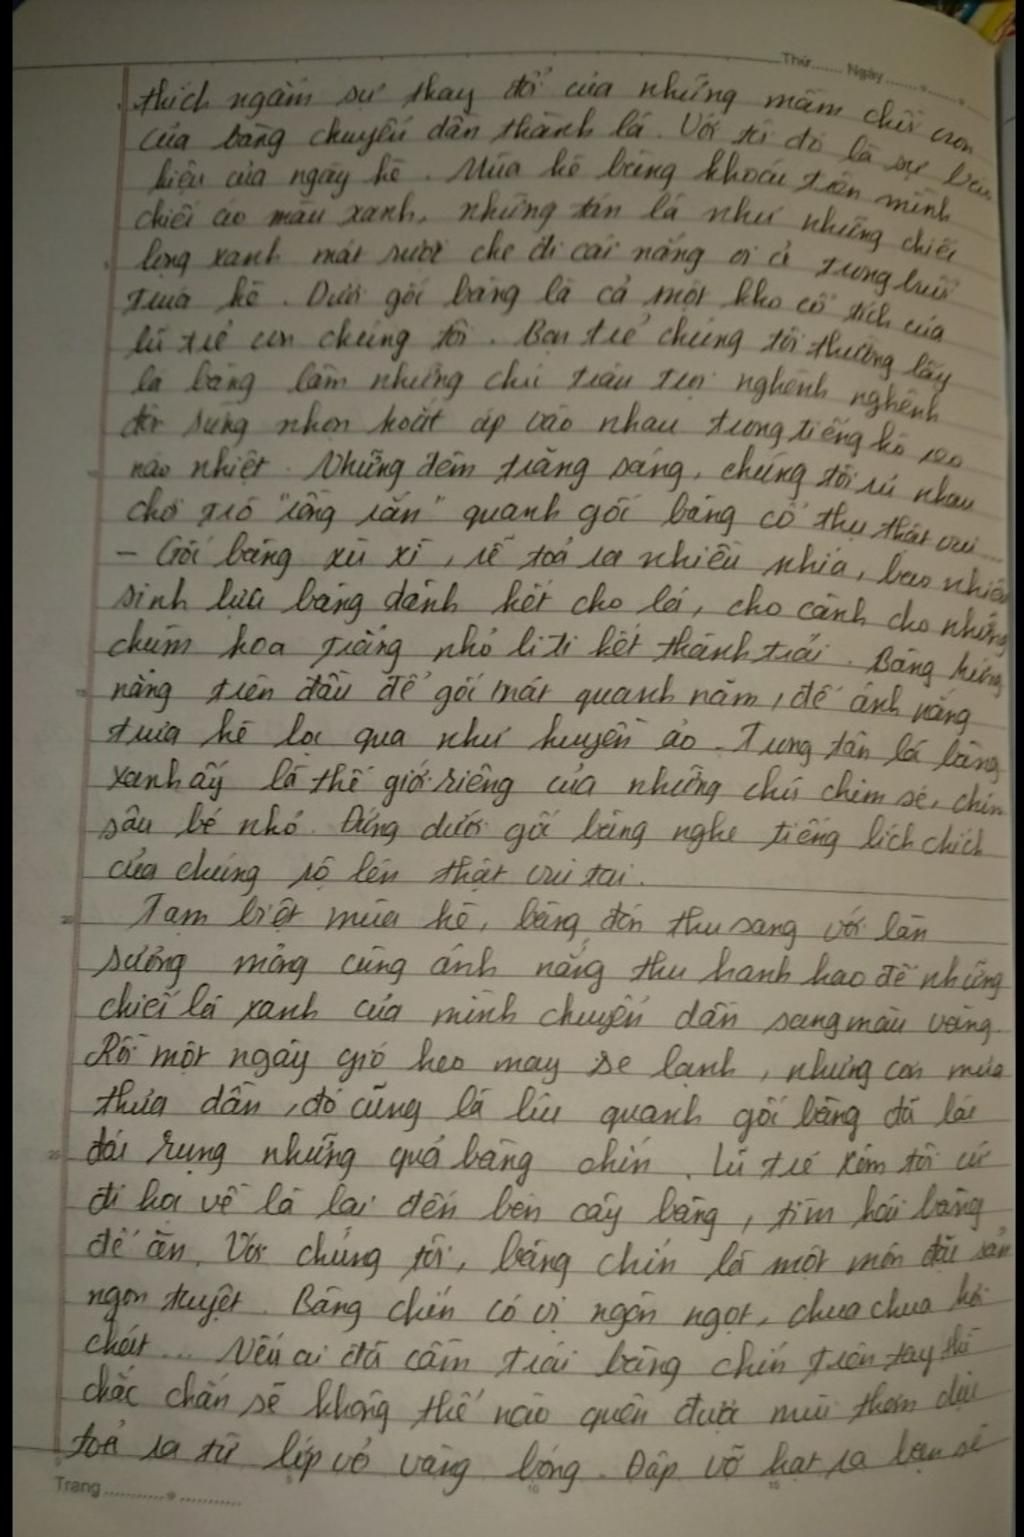 Thứ........ Ngày........
thích ngắm sự thay đổi của những mầm chồi non
của bàng chuyển dần thành lá. Với tôi đó là sự báo
hiệu của ngày hè. Mùa hè bàng khoác trên mình
chiếc áo màu xanh, những tán lá như những chiếc
lọng xanh mát rượi che đi cái nắng oi ả trong buổi
trưa hè. Dưới gốc bàng là cả một kho cổ tích của
lũ trẻ con chúng tôi. Bọn trẻ chúng tôi thường lấy
lá bàng làm những chú trâu trọi nghênh nghênh
đôi sừng nhọn hoắt áp vào nhau trong tiếng hò reo
náo nhiệt. Những đêm trăng sáng, chúng tôi rủ nhau
chơi trò "rồng rắn" quanh gốc bàng cổ thụ thật vui...
- Gốc bàng xù xì, rễ toả ra nhiều nhía, bao nhiêu
sinh lực bàng dành hết cho lá, cho cành cho những
chùm hoa trắng nhỏ li ti kết thành trái. Bàng hứng
nắng trên đầu để gốc mát quanh năm, để ánh nắng
trưa hè lọc qua như huyền ảo. Trong tán lá bàng
xanh ấy là thế giới riêng của những chú chim sẻ, chim
sâu bé nhỏ. Đứng dưới gốc bàng nghe tiếng lích chích
của chúng rộ lên thật vui tai.
Tạm biệt mùa hè, bàng đón thu sang với làn
sương mỏng cùng ánh nắng thu hanh hao để những
chiếc lá xanh của mình chuyển dần sang màu vàng.
Rồi một ngày gió heo may se lạnh, những cơn mưa
thưa dần, đó cũng là lúc quanh gốc bàng đã lác
đác rụng những quả bàng chín. Lũ trẻ xóm tôi cứ
đi học về là lại đến bên cây bàng, tìm hái bàng
để ăn. Với chúng tôi, bàng chín là một món đặc sản
ngon tuyệt. Bàng chín có vị ngòn ngọt, chua chua hơi
chát... Nếu ai đã cầm trái bàng chín trên tay thì
chắc chắn sẽ không thể nào quên được mùi thơm dịu
toả ra từ lớp vỏ vàng bóng. Đập vỡ hạt ra bạn sẽ
Trang ........